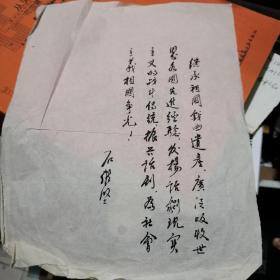 继承祖国戏曲遗产,广泛吸收世
界各国先进经验,发扬话剧现实
主义的战斗传统,振兴话剧,为社会
主义祖国争光!
石维坚